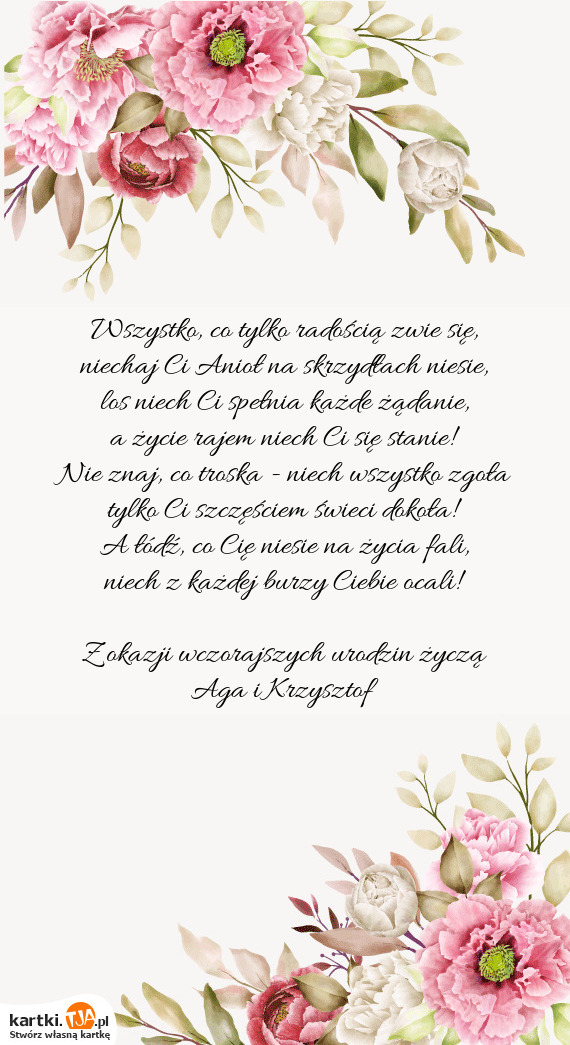 Wszystko, co tylko radością zwie się,
niechaj Ci Anioł na skrzydłach niesie,
los niech Ci spełnia każde żądanie,
a życie rajem niech Ci się stanie!
Nie znaj, co troska - niech wszystko zgoła
tylko Ci szczęściem świeci dokoła!
A łódź, co Cię niesie na życia fali,
niech z każdej burzy Ciebie ocali!

Z okazji wczorajszych urodzin życzą
Aga i Krzysztof
kartki.TJA.pl
Stwórz własną kartkę